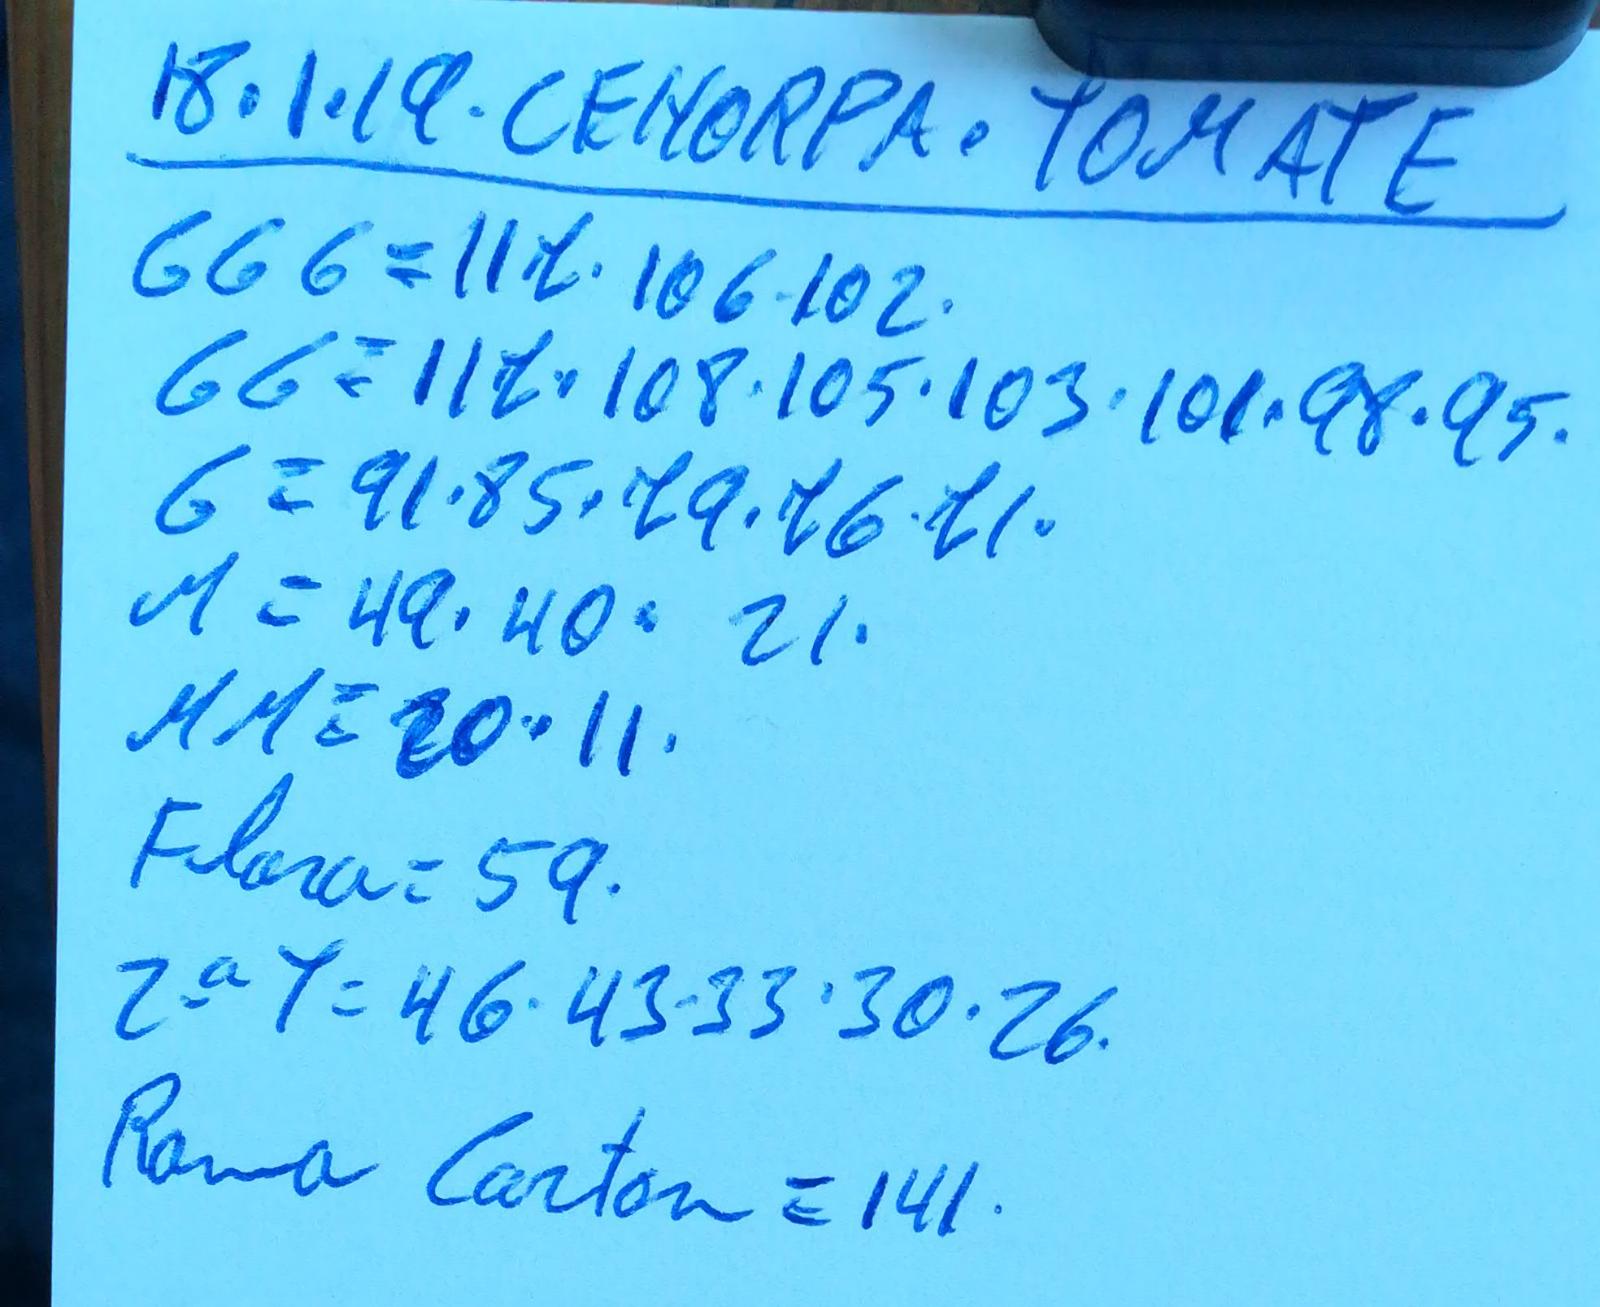 18.1.19. CENORPA. TOMATE
GGG = 117. 106. 102.
GG = 117. 108. 105. 103. 101. 98. 95.
G = 91. 85. 79. 76. 71.
M = 49. 40. 21.
MM = 20. 11.
Flora = 59.
2ª T = 46. 43. 33. 30. 26.
Rama Carton = 141.